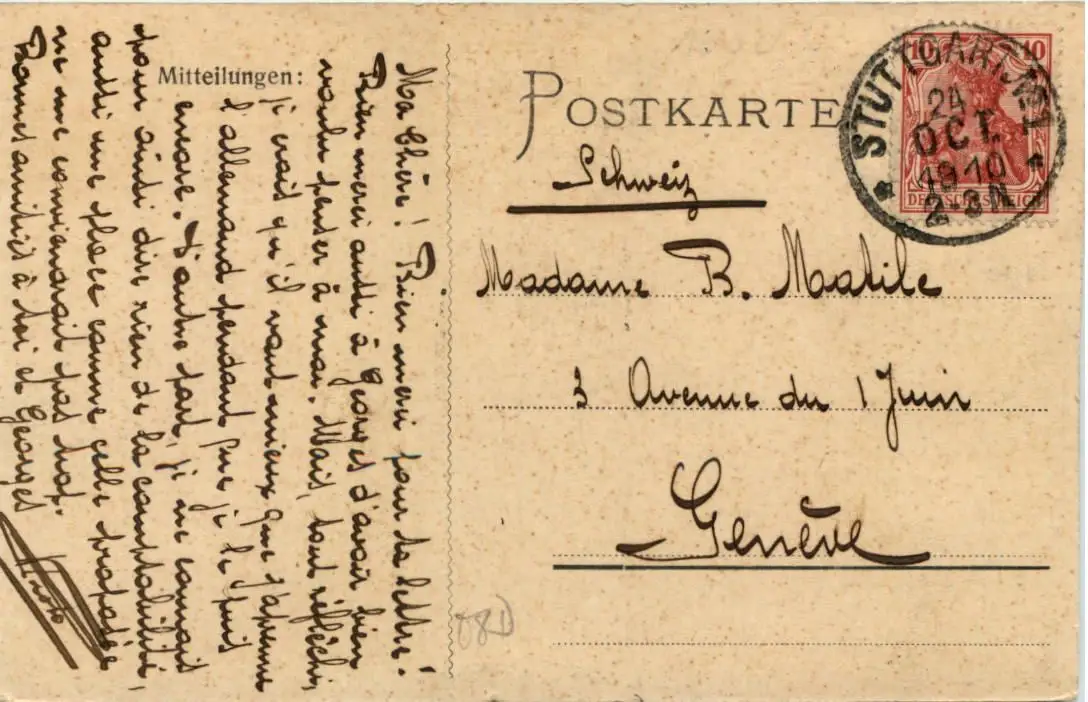 Mitteilungen:
Ma Chère! Bien merci pour ta lettre!
Bien merci aussi à Georges d'avoir bien
voulu penser à moi. Mais, tout réfléchi,
je crois qu'il vaut mieux que j'apprenne
l'allemand pendant que je le puis
encore. D'autre part, je ne connais
pour ainsi dire rien de la comptabilité,
aussi une place comme celle proposée
ne me conviendrait pas trop.
Bonnes amitiés à toi et Georges
POSTKARTE
Schweiz
Madame B. Matile
3 Avenue du 1 Juin
Genève
10 10
DEUTSCHES REICH
STUTTGART. No 1
24
OCT.
1910
2-3N
08D